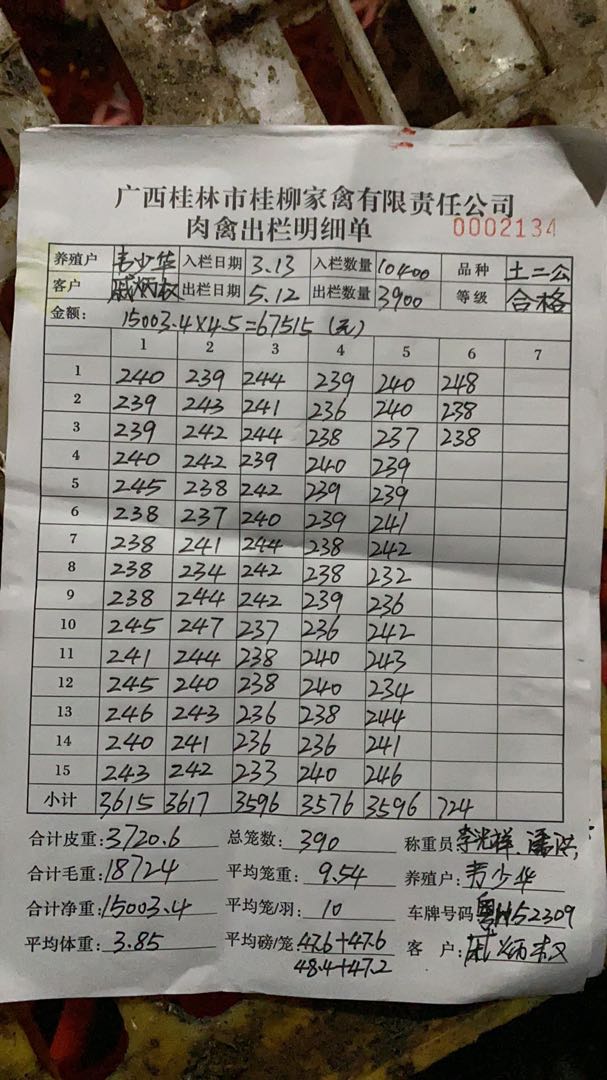 广西桂林市桂柳家禽有限责任公司
肉禽出栏明细单 0002134
养殖户 韦少华 入栏日期 3.13 入栏数量 10400 品种 土二公
客户 戚炳权 出栏日期 5.12 出栏数量 3900 等级 合格
金额: 15003.4×4.5=67515 (元)
1 2 3 4 5 6 7
1 240 239 244 239 240 248
2 239 243 241 236 240 238
3 239 242 244 238 237 238
4 240 242 239 240 239
5 245 238 242 239 239
6 238 237 240 239 241
7 238 241 244 238 242
8 238 234 242 238 232
9 238 244 242 239 236
10 245 247 237 236 242
11 241 244 238 240 243
12 245 240 238 240 234
13 246 243 236 238 244
14 240 241 236 236 241
15 243 242 233 240 246
小计 3615 3617 3596 3576 3596 724
合计皮重: 3720.6 总笼数: 390 称重员 李光祥、潘
合计毛重: 18724 平均笼重: 9.54 养殖户: 韦少华
合计净重: 15003.4 平均笼/羽: 10 车牌号码 粤H52309
平均体重: 3.85 平均磅/笼 47.6+47.6 客 户: 戚炳权
48.4+47.2